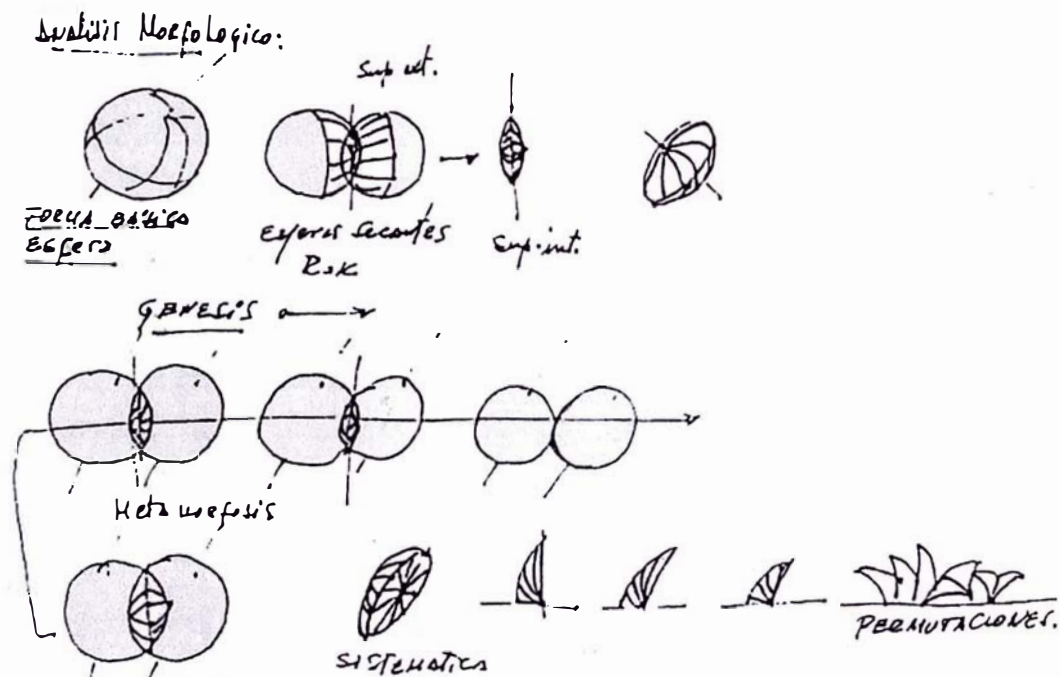 Análisis Morfológico:
Sup ext.
Forma básica
Esfera
Esferas Secantes
Sup. int.
GENESIS
Metamorfosis
SISTEMATICA
PERMUTACIONES.